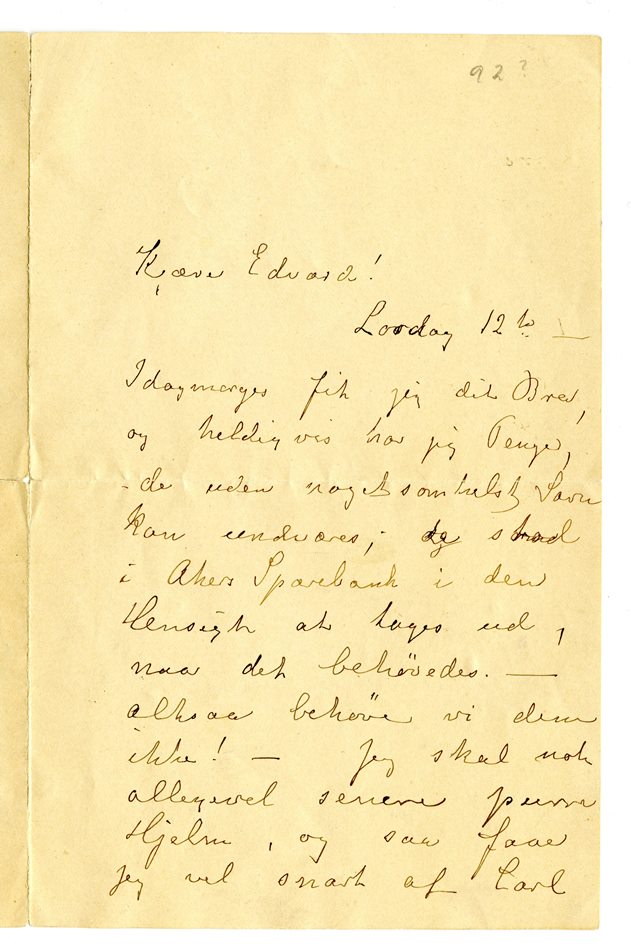 92?
Kjære Edvard!
Lordag 12te
Idagmorges fik jeg dit Brev,
og heldigvis har jeg Penge,
de uden nogetsomhelst Savn
kan undværes; de stod
i Akers Sparebank i den
Hensigt at tages ud,
naar det behövedes. —
altsaa behöve vi dem
ikke! — Jeg skal nok
allegevel senere purre
Hjelm, og saa faae
jeg vel snart af Carl